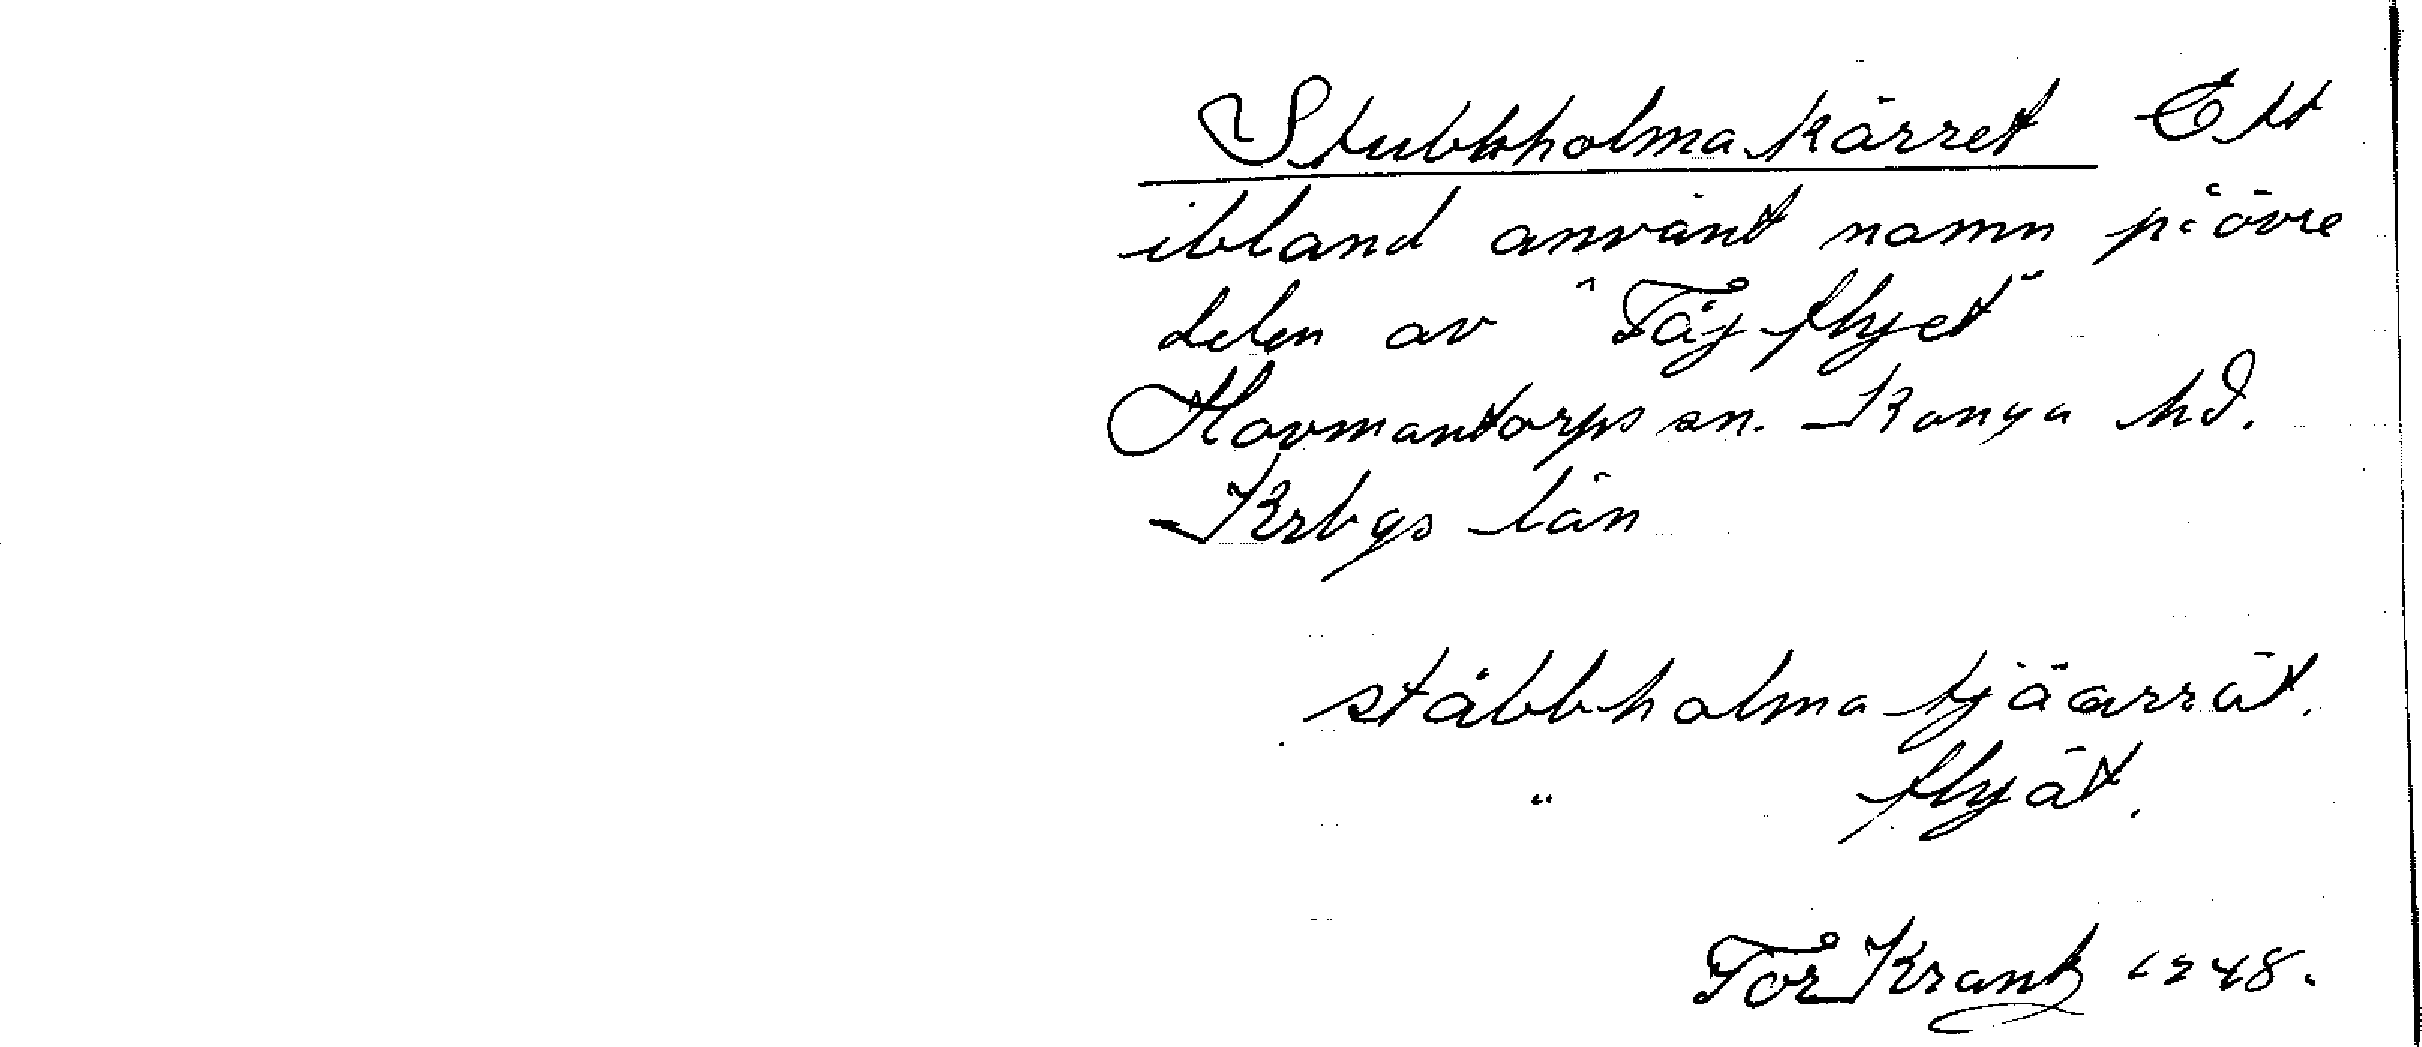 Stubbholmakärret Ett
ibland använt namn på övre
delen av "Täjflyet"
Hovmantorps sn. Konga hd.
Krbgs län
ståbbholmatjäarrät.
" flyät.
Tor Krantz 1948.